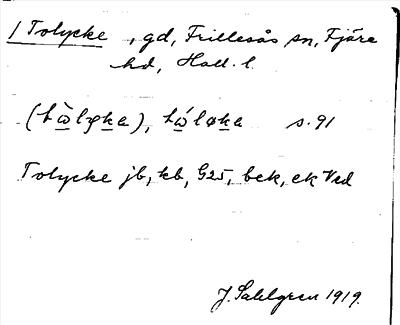 1 Tolycke, gd, Frillesås sn, Fjäre
hd, Hall. l.
(tὼlyka), tώløka s. 91
Tolycke jb, kb, G25, bek, ek Ved
J. Sahlgren 1919.